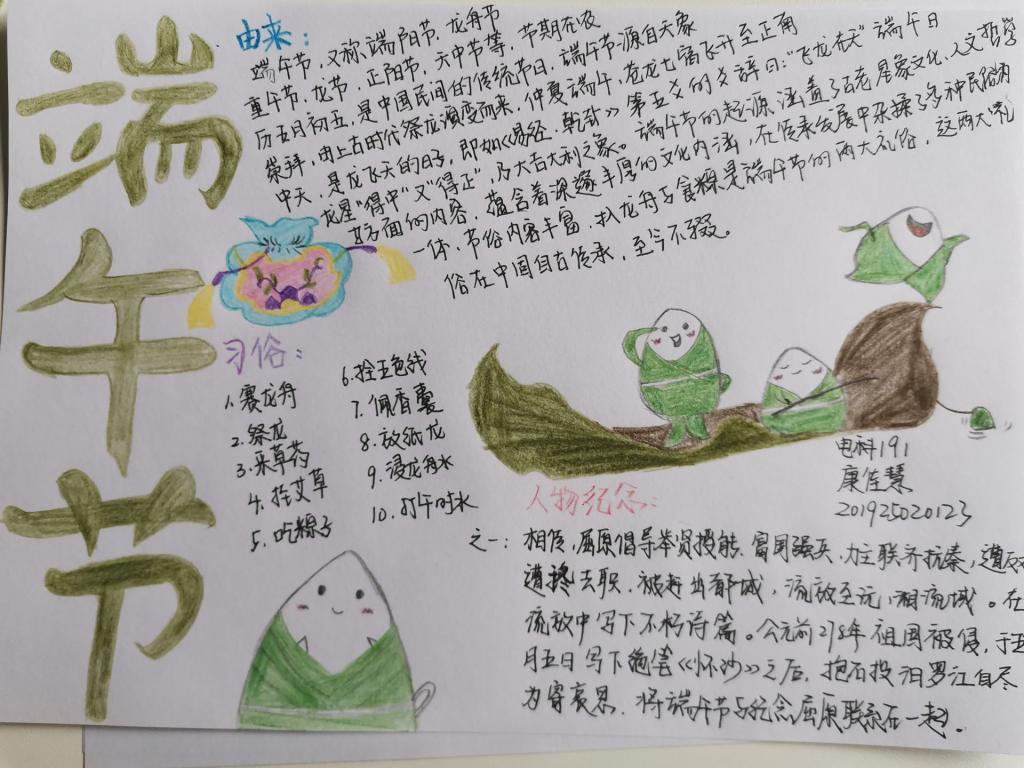 端午节
由来：
端午节，又称端阳节，龙舟节
重午节，龙节，正阳节，天中节等，节期在农
历五月初五，是中国民间的传统节日，端午节源自天象
崇拜，由上古时代祭龙演变而来，仲夏端午，苍龙七宿飞升至正南
中天，是龙飞天的日子，即如《易经·乾卦》第五爻的爻辞曰：“飞龙在天”端午日
龙星“得中”又“得正”，乃大吉大利之象。端午节的起源涵盖了古老星象文化，人文哲学
等方面的内容，蕴含着深邃丰厚的文化内涵，在传承发展中杂揉了多种民俗为
一体，节俗内容丰富，扒龙舟与食粽是端午节的两大礼俗，这两大礼
俗在中国自古传承，至今不辍。
习俗：
1、赛龙舟
2、祭龙
3、采草药
4、拴艾草
5、吃粽子
6、拴五色线
7、佩香囊
8、放纸龙
9、浸龙舟水
10、打午时水
电科191
康佳慧
201925020123
人物纪念：
之一：相传，屈原倡导举贤授能，富国强兵，力主联齐抗秦，遭
遭谗去职，被赶出都城，流放至沅、湘流域。在
流放中写下不朽诗篇。公元前278年祖国被侵，于五
月五日写下绝笔《怀沙》之后，抱石投汨罗江自尽
为寄哀思，将端午节与纪念屈原联系在一起。